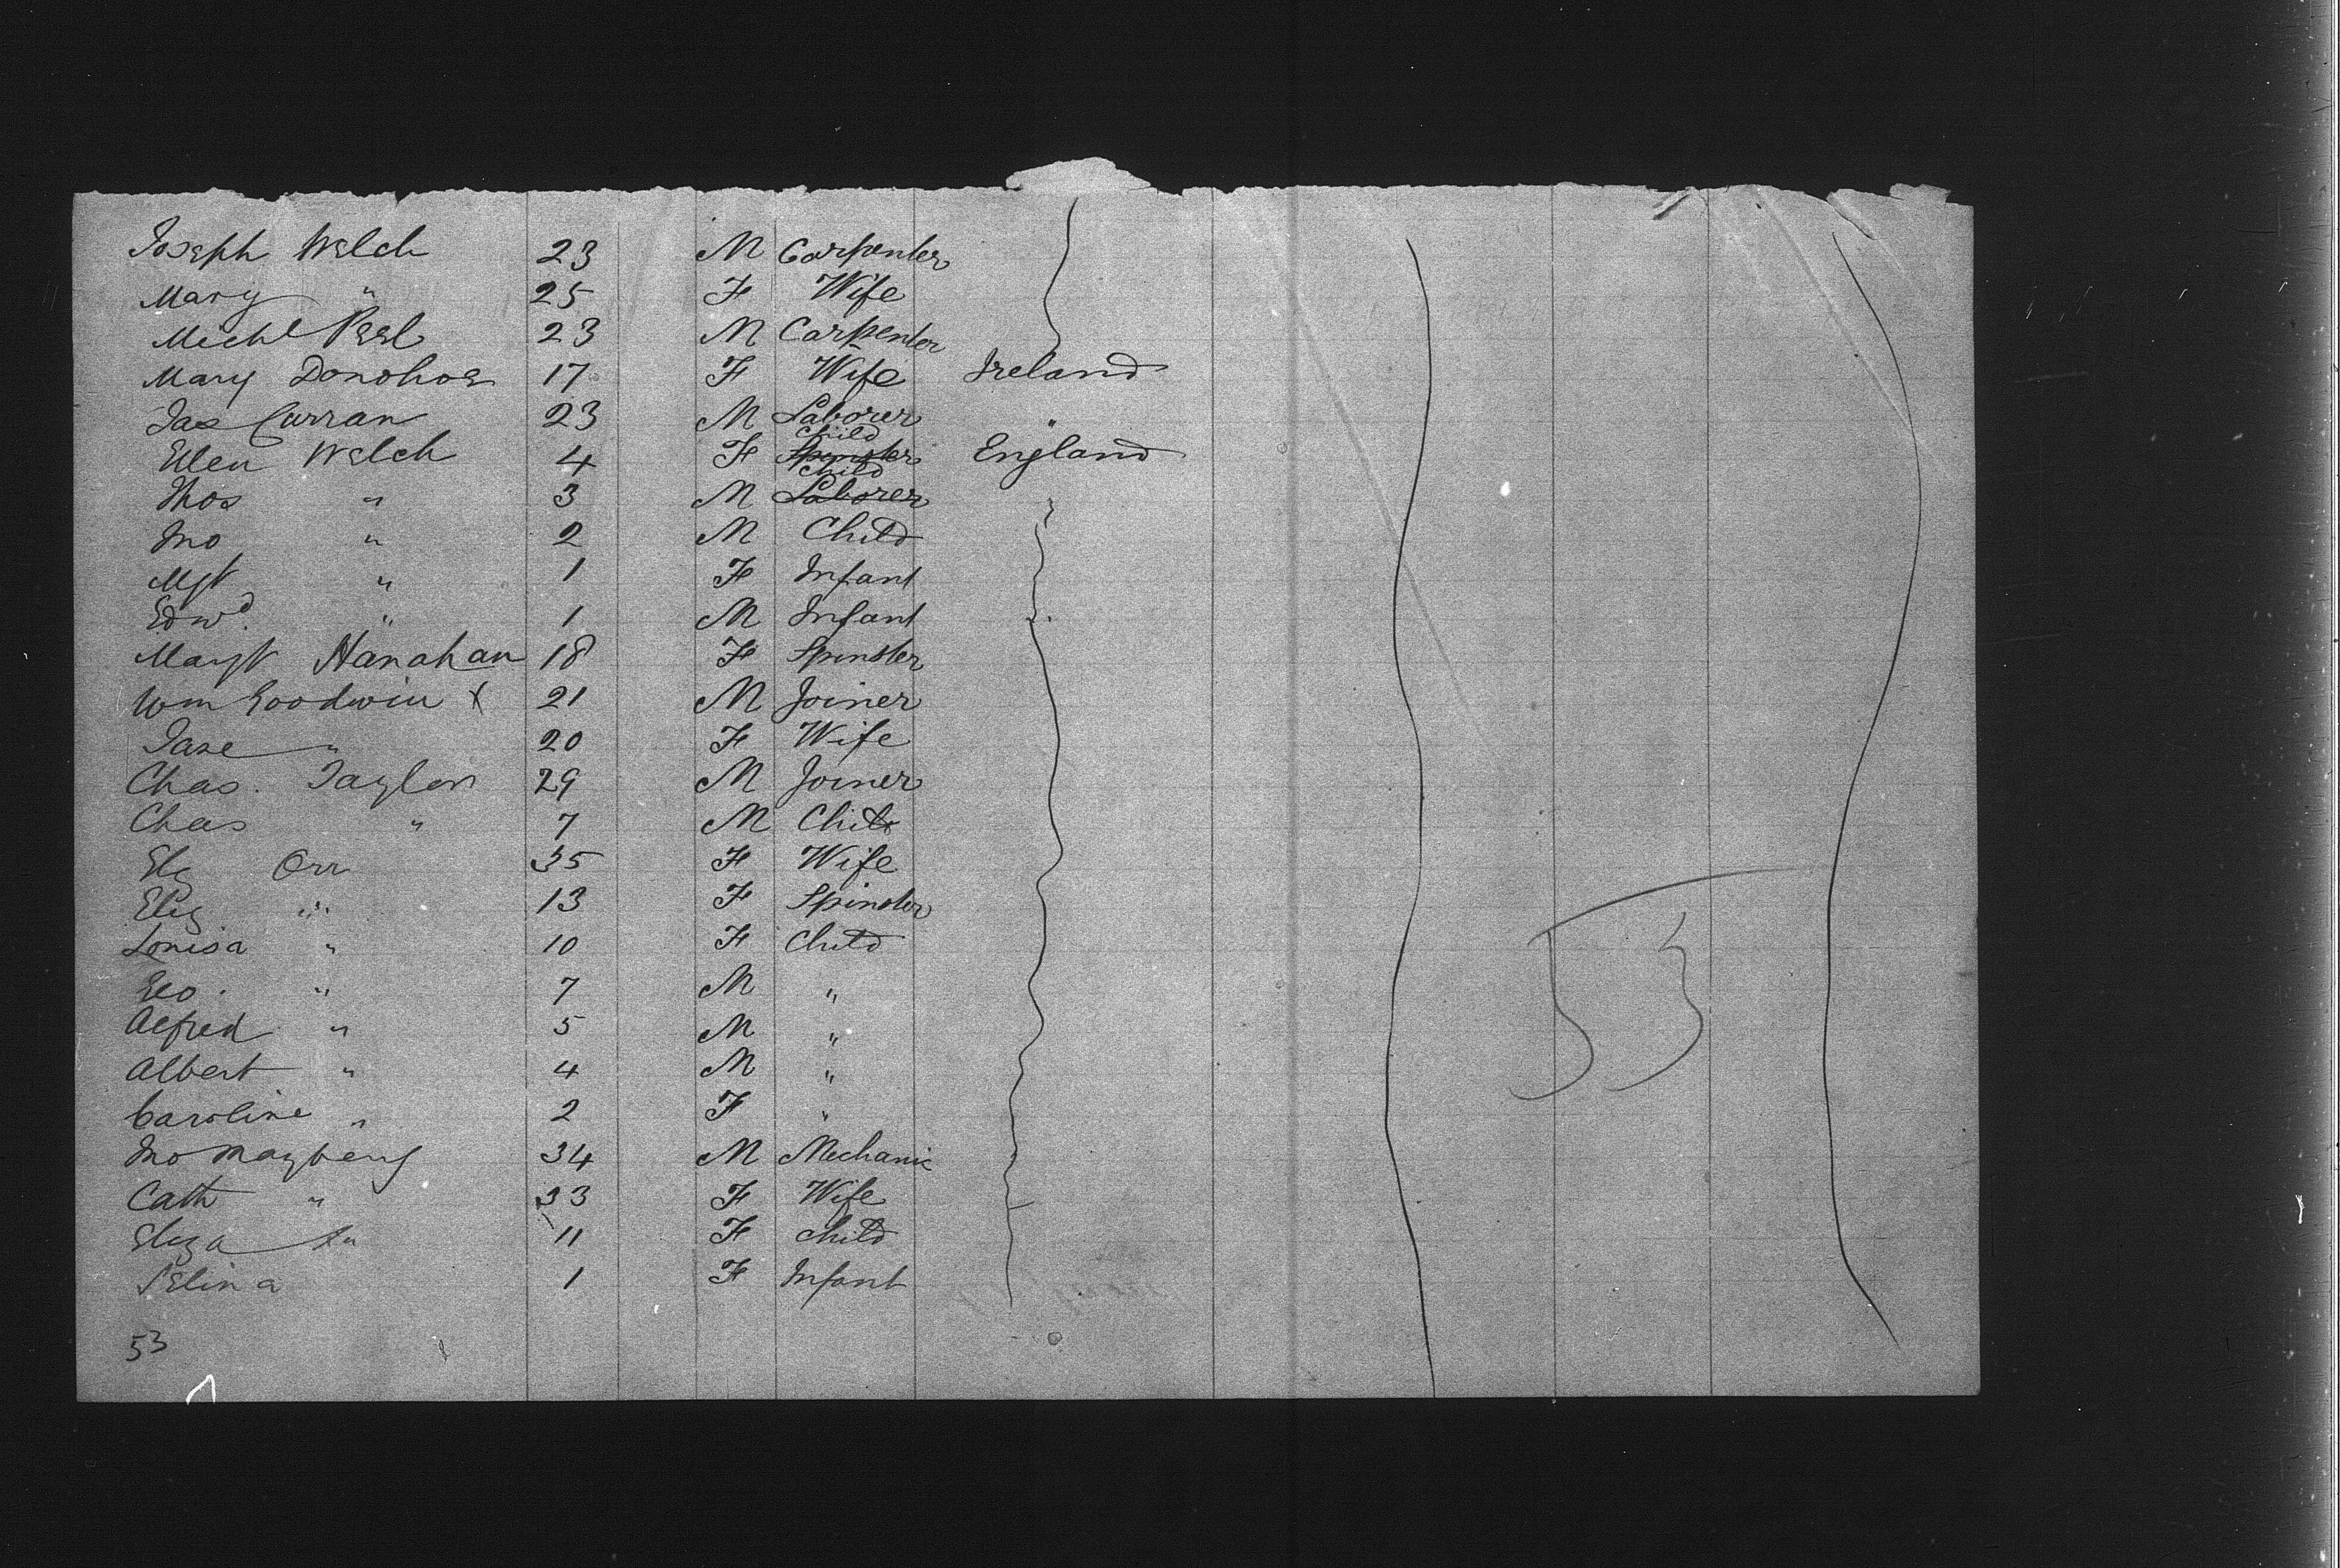 Joseph Welch 23 M Carpenter
Mary " 25 F Wife
Michl Peel 23 M Carpenter
Mary Donohoe 17 F Wife Ireland
Jas Curran 23 M Laborer "
Child
Ellen Welch 4 F Spinster England
Child
Thos " 3 M Laborer
Jno " 2 M Child
Mgt " 1 F Infant
Edwd. " 1 M Infant
Margt Hanahan 18 F Spinster
Wm Goodwin X 21 M Joiner
Jane " 20 F Wife
Chas. Taylor 29 M Joiner
Chas " 7 M Child
Elz Orr 35 F Wife
Eliz " 13 F Spinster
Louisa " 10 F Child
Geo. " 7 M "
Alfred " 5 M "
Albert " 4 M "
Caroline " 2 F "
Jno Mayberry 34 M Mechanic
Cath " 33 F Wife
Eliza 11 F Child
Selina 1 F Infant
53
53